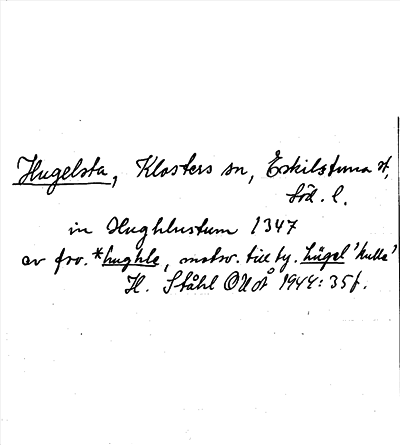 Hugelsta, Klosters sn, Eskilstuna st,
Söd. l.
in Hughlustum 1347
av fsv. *hughle, motsv. till ty. hügel 'kulle'
H. Ståhl OUÅ 1944: 35f.